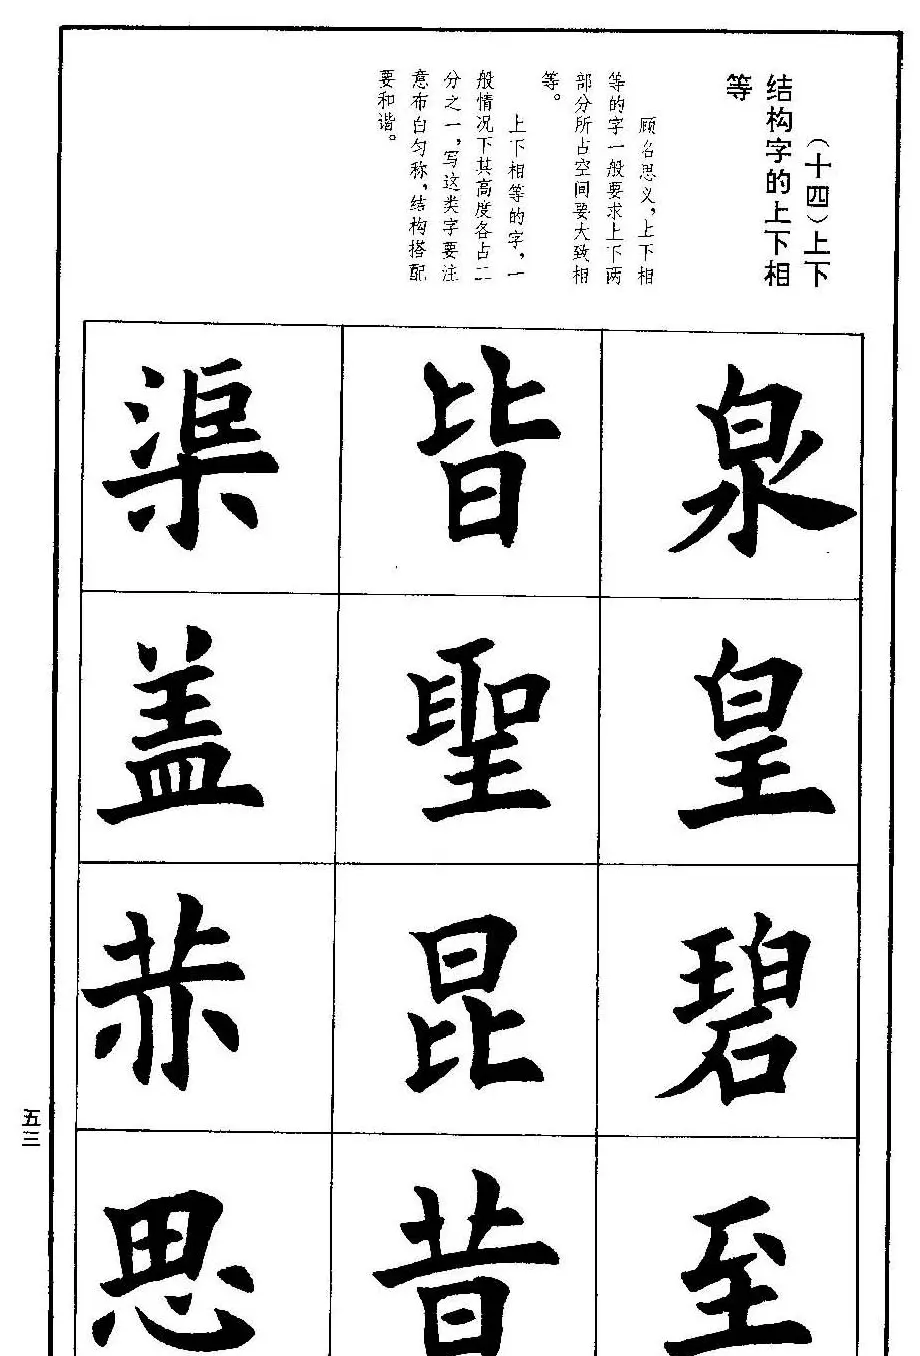 （十四）上下
结构字的上下相
等
顾名思义，上下相
等的字一般要求上下两
部分所占空间要大致相
等。
上下相等的字，一
般情况下其高度各占二
分之一，写这类字要注
意布白匀称，结构搭配
要和谐。
泉皇碧至
皆聖昆昔
渠盖恭思
五三